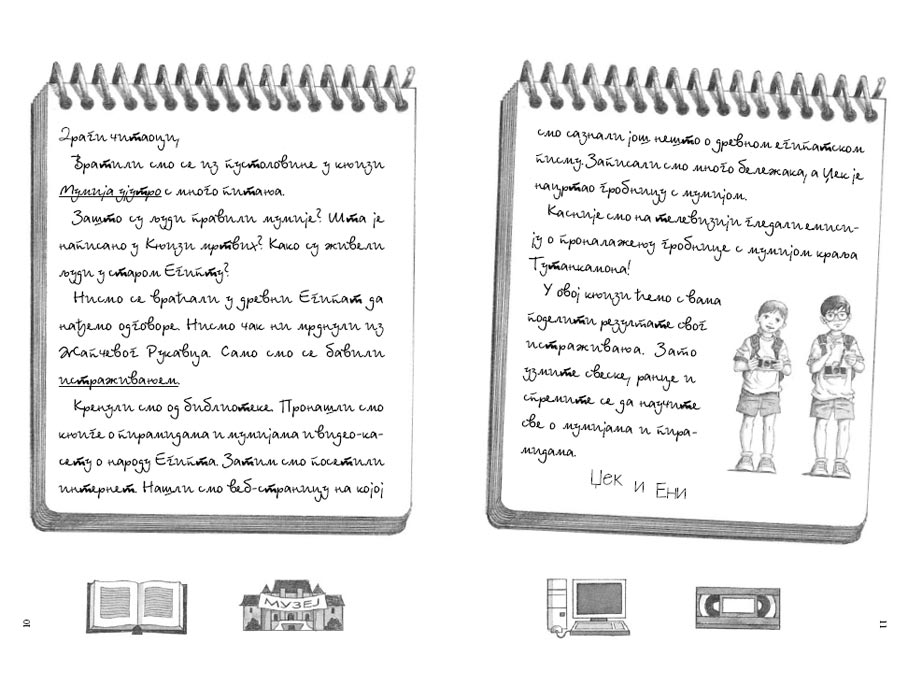 Драги читаоци,
Вратили смо се из пустоловине у књизи
Мумија ујутро с много питања.
Зашто су људи правили мумије? Шта је
написано у Књизи мртвих? Како су живели
људи у старом Египту?
Нисмо се враћали у древни Египат да
нађемо одговоре. Нисмо чак ни мрднули из
Жапчевог Рукавца. Само смо се бавили
истраживањем.
Кренули смо од библиотеке. Пронашли смо
књиге о пирамидама и мумијама и видео-ка-
сету о народу Египта. Затим смо посетили
интернет. Нашли смо веб-страницу на којој
10
МУЗЕЈ
смо сазнали још нешто о древном египатском
писму. Записали смо много бележака, а Џек је
нацртао гробницу с мумијом.
Касније смо на телевизији гледали емиси-
ју о проналажењу гробнице с мумијом краља
Тутанкамона!
У овој књизи ћемо с вама
поделити резултате свог
истраживања. Зато
узмите свеске, ранце и
спремите се да научите
све о мумијама и пира-
мидама.
Џек и Ени
11